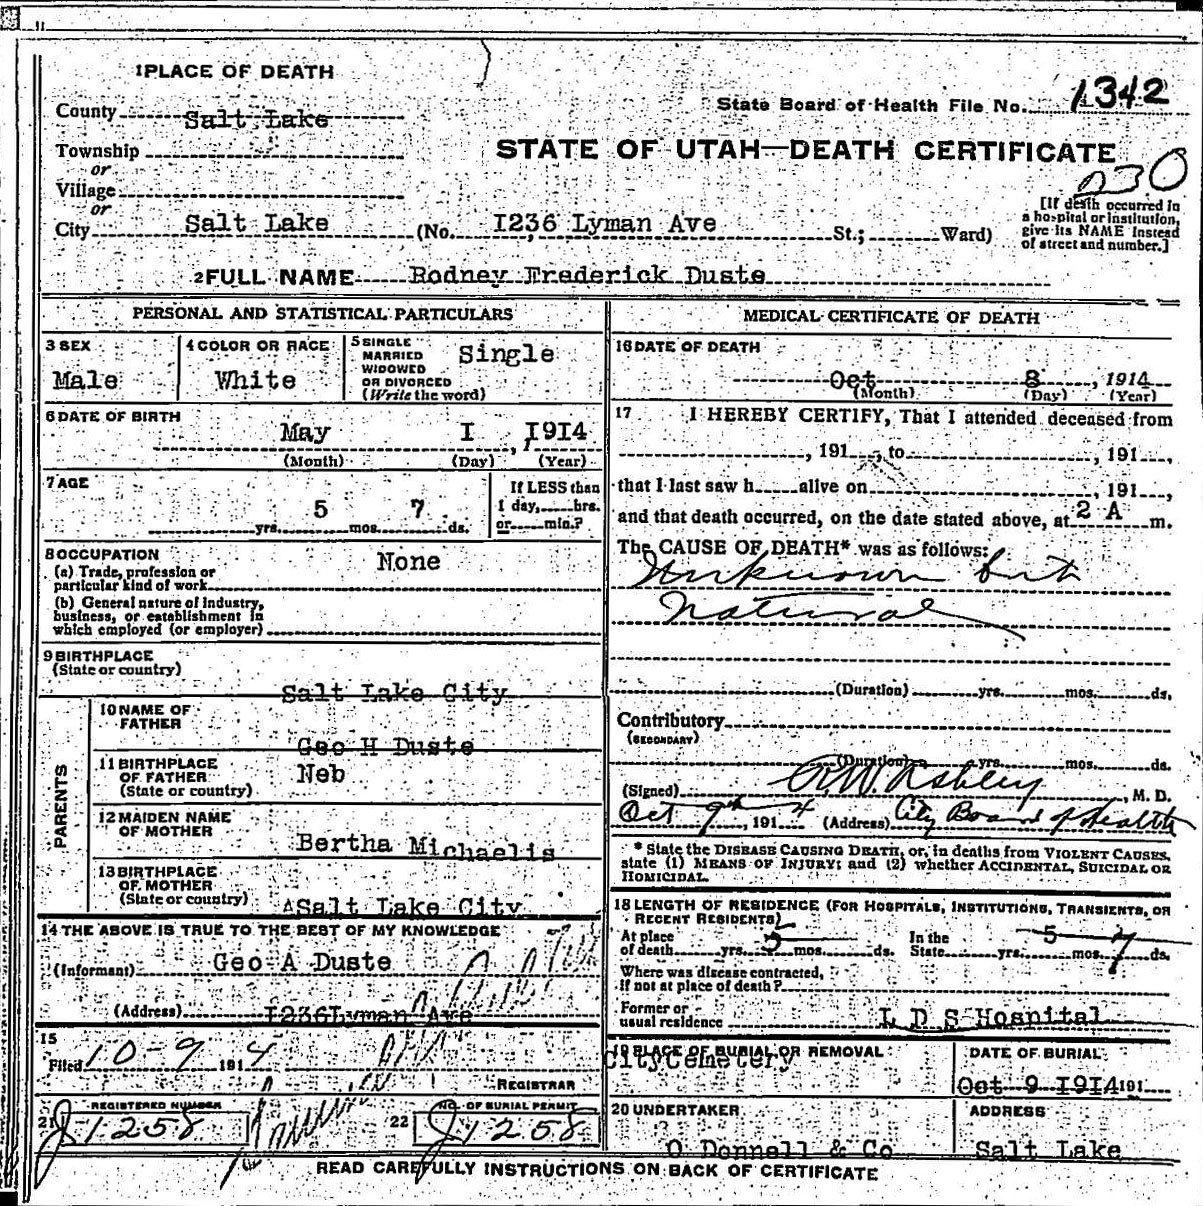 1 PLACE OF DEATH
County Salt Lake
State Board of Health File No. 1342
Township
or
STATE OF UTAH—DEATH CERTIFICATE
Village
or
230
[If death occurred in
a hospital or institution,
give its NAME instead
of street and number.]
City Salt Lake (No. I236 Lyman Ave St.; Ward)
2 FULL NAME Rodney Frederick Duste
PERSONAL AND STATISTICAL PARTICULARS
3 SEX
Male
4 COLOR OR RACE
White
5 SINGLE
MARRIED
WIDOWED
OR DIVORCED
(Write the word)
Single
6 DATE OF BIRTH
May I, I9I4
(Month) (Day) (Year)
7 AGE
5 7
yrs. mos. ds.
If LESS than
1 day, hrs.
or min.?
8 OCCUPATION
None
(a) Trade, profession or
particular kind of work
(b) General nature of industry,
business, or establishment in
which employed (or employer)
9 BIRTHPLACE
(State or country)
Salt Lake City
PARENTS
10 NAME OF
FATHER
Geo H Duste
11 BIRTHPLACE
OF FATHER
(State or country)
Neb
12 MAIDEN NAME
OF MOTHER
Bertha Michaelis
13 BIRTHPLACE
OF MOTHER
(State or country)
Salt Lake City
14 THE ABOVE IS TRUE TO THE BEST OF MY KNOWLEDGE
(Informant) Geo A Duste
(Address) I236Lyman Ave
15
Filed 10-9 1914
REGISTRAR
REGISTERED NUMBER
21 J1258
NO. OF BURIAL PERMIT
22 J1258
MEDICAL CERTIFICATE OF DEATH
16 DATE OF DEATH
Oct 8, 1914
(Month) (Day) (Year)
17 I HEREBY CERTIFY, That I attended deceased from
, 191 , to , 191 ,
that I last saw h alive on , 191 ,
and that death occurred, on the date stated above, at 2 A m.
The CAUSE OF DEATH* was as follows:
Unknown but
Natural
(Duration) yrs. mos. ds.
Contributory
(SECONDARY)
(Duration) yrs. mos. ds.
(Signed) , M. D.
Oct 9th, 1914 (Address) City Board of Health
* State the DISEASE CAUSING DEATH, or, in deaths from VIOLENT CAUSES,
state (1) MEANS OF INJURY; and (2) whether ACCIDENTAL, SUICIDAL OR
HOMICIDAL.
18 LENGTH OF RESIDENCE (FOR HOSPITALS, INSTITUTIONS, TRANSIENTS, OR
RECENT RESIDENTS)
At place
of death yrs. 5 mos. ds.
In the
State yrs. 5 mos. 7 ds.
Where was disease contracted,
if not at place of death?
Former or
usual residence L D S Hospital
19 PLACE OF BURIAL OR REMOVAL
CityCemetery
DATE OF BURIAL
Oct 9 I9I4 191
20 UNDERTAKER
O Donnell & Co
ADDRESS
Salt Lake
READ CAREFULLY INSTRUCTIONS ON BACK OF CERTIFICATE